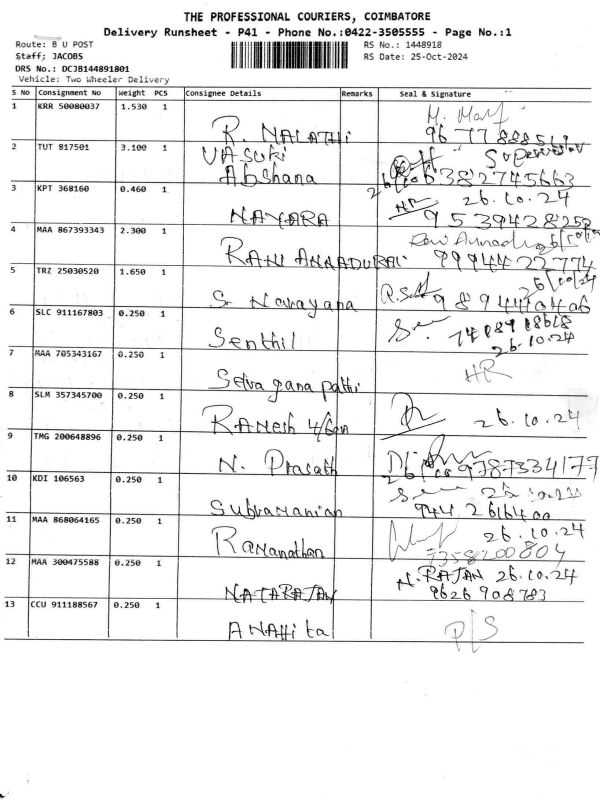 THE PROFESSIONAL COURIERS, COIMBATORE
Delivery Runsheet - P41 - Phone No.:0422-3505555 - Page No.:1
Route: B U POST
Staff; JACOBS
DRS No.: DCJB144891801
Vehicle: Two Wheeler Delivery
RS No.: 1448918
RS Date: 25-Oct-2024
S No Consignment No Weight PCS Consignee Details Remarks Seal & Signature
1 KRR 50080037 1.530 1
R. NALATHI
2 TUT 817501 3.100 1
VASUKI Supervisor
Abshana 6382745663
3 KPT 368160 0.460 1
26.10.24
NAYARA HR 9539428252
4 MAA 867393343 2.300 1
RANI ANNADURAI 9994422774
5 TRZ 25030520 1.650 1
26/10/24
S. Narayana
6 SLC 911167803 0.250 1
Senthil 26.10.24
7 MAA 705343167 0.250 1
Selva gana pathi HR
8 SLM 357345700 0.250 1
RANESH 26.10.24
9 TMG 200648896 0.250 1
N. Prasath 9787334177
10 KDI 106563 0.250 1
Subramanian 944 26164 00
11 MAA 868064165 0.250 1
26.10.24
Ramanathan 7358200804
12 MAA 300475588 0.250 1
N. RAJAN 26.10.24
NATARAJAN 9626 908783
13 CCU 911188567 0.250 1
ANAHita P/S